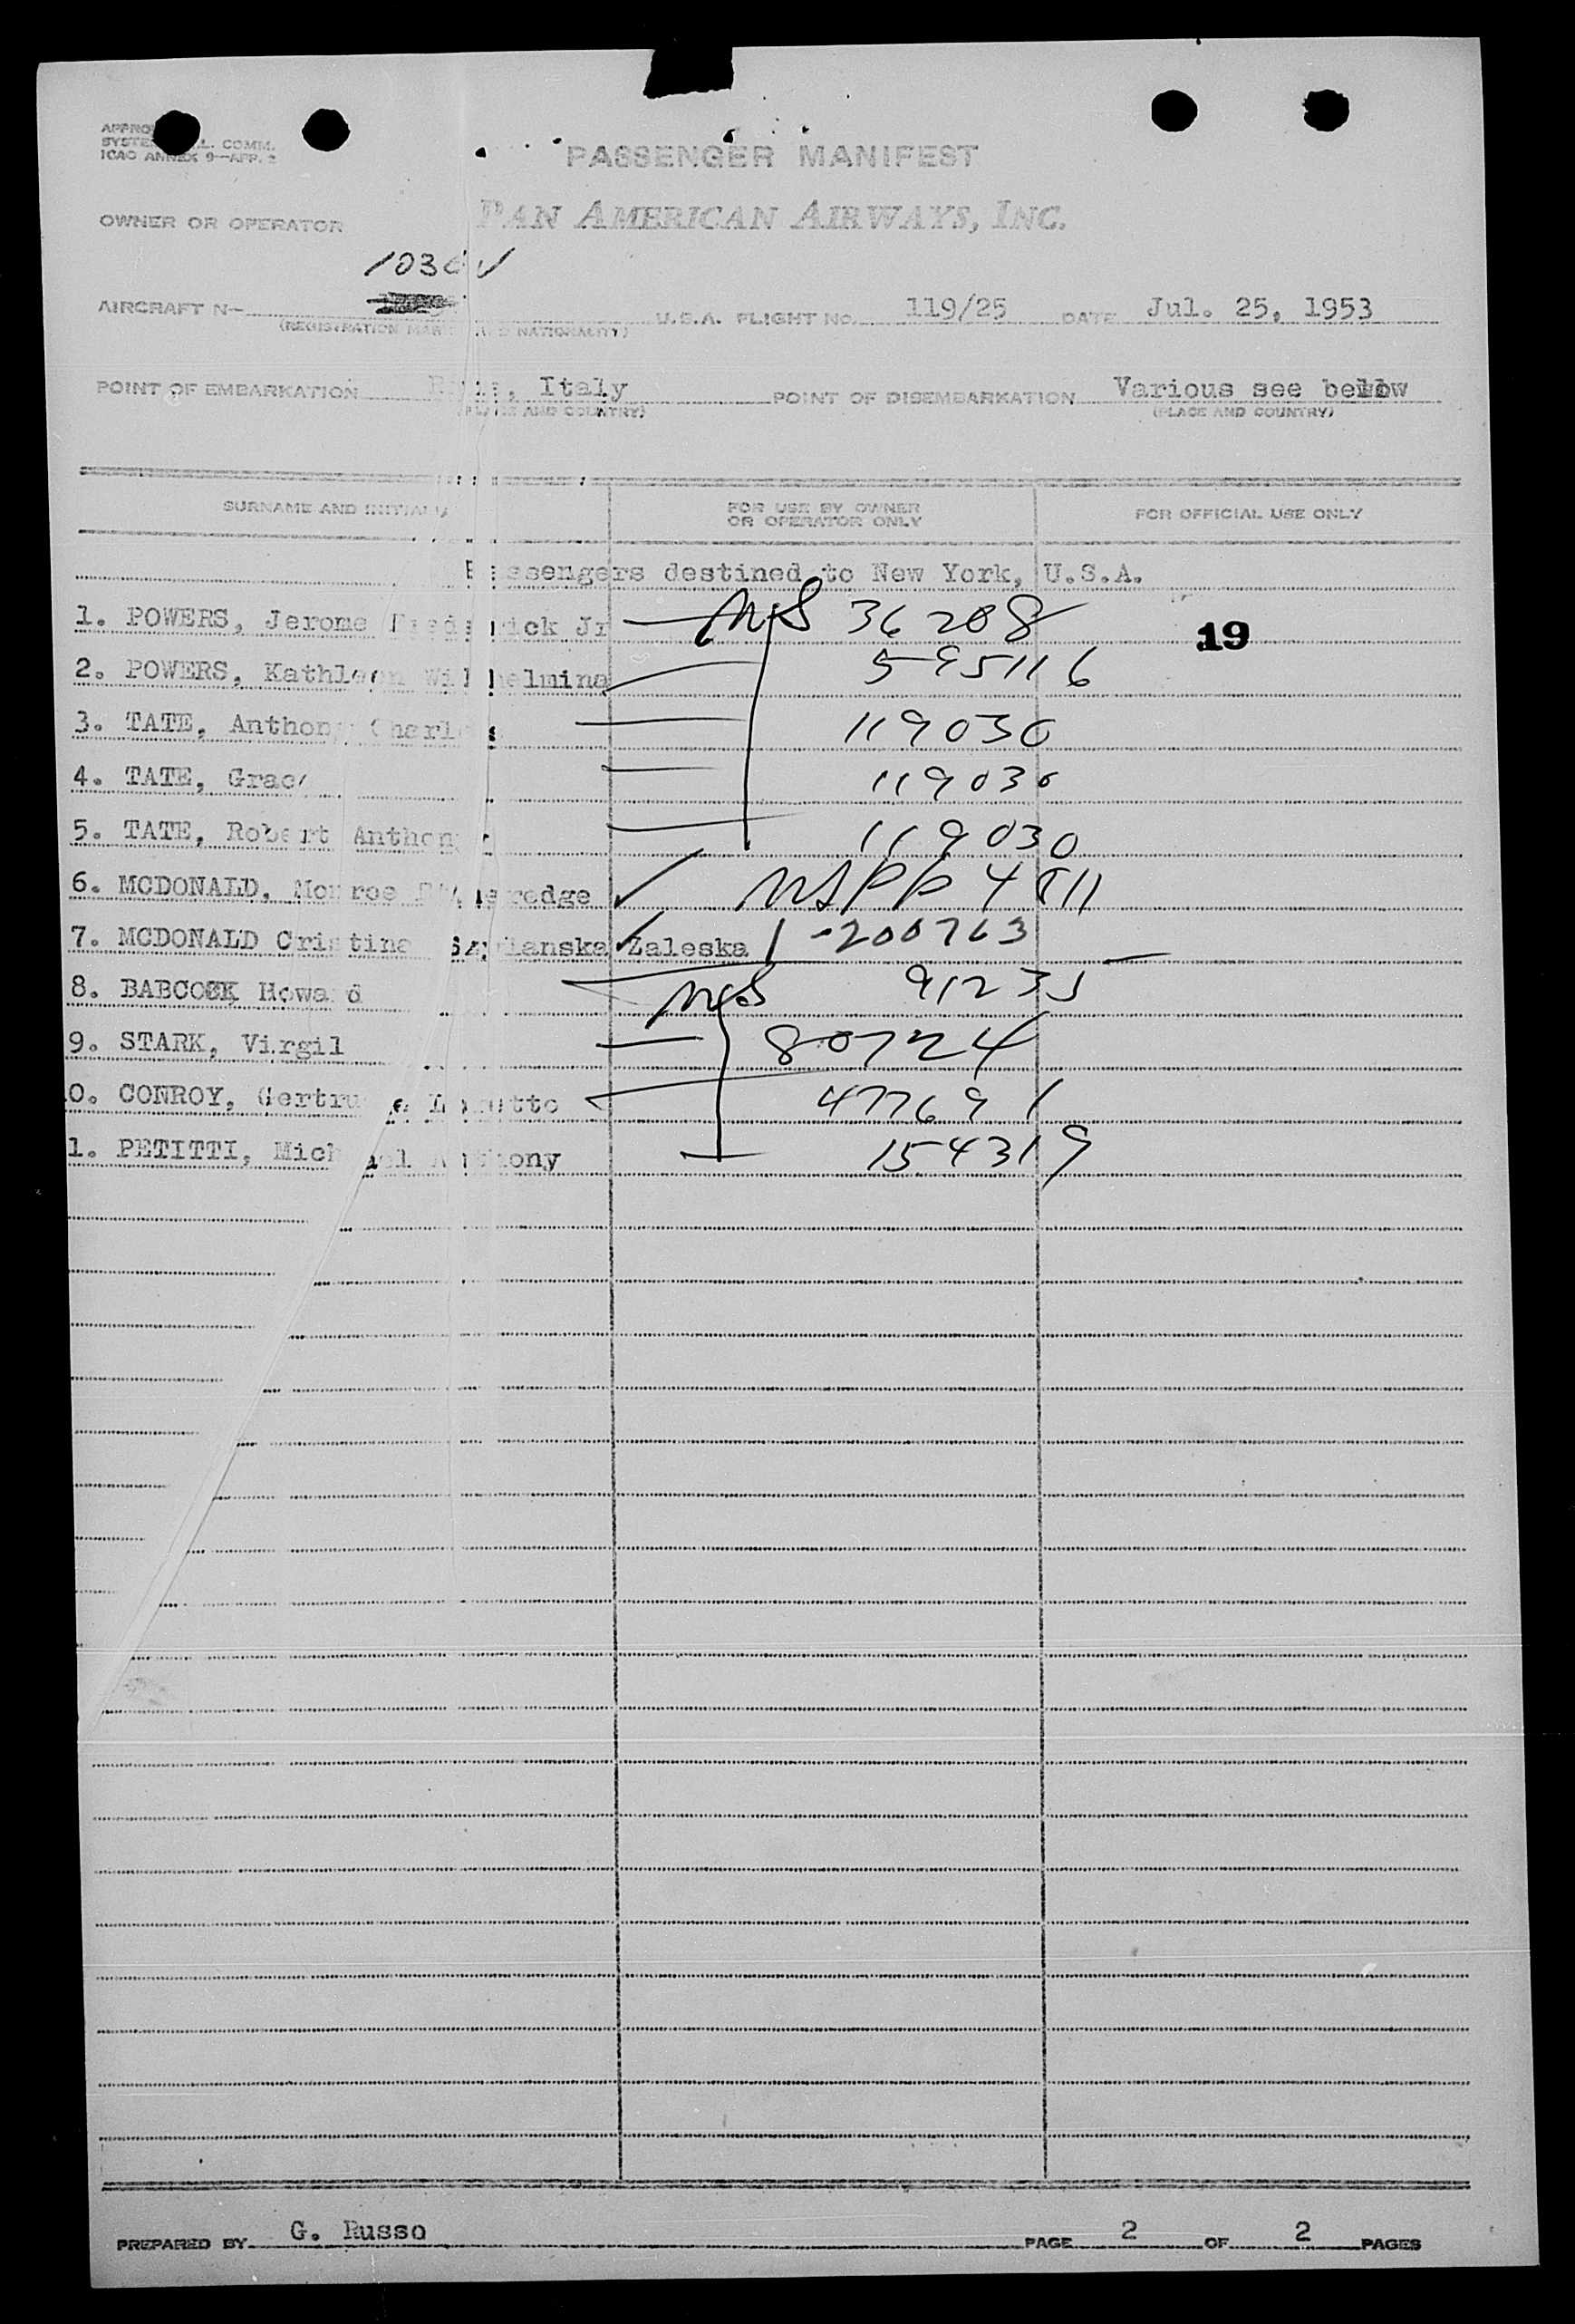 SYSTE L. COMM.
ICAO ANNEX 9—APP. 2
PASSENGER MANIFEST
OWNER OR OPERATOR PAN AMERICAN AIRWAYS, INC.
AIRCRAFT N- U.S.A. FLIGHT NO. 119/25 DATE Jul. 25, 1953
(REGISTRATION MARK AND NATIONALITY)
POINT OF EMBARKATION Italy POINT OF DISEMBARKATION Various see below
(PLACE AND COUNTRY) (PLACE AND COUNTRY)
SURNAME AND INITIALS FOR USE BY OWNER OR OPERATOR ONLY FOR OFFICIAL USE ONLY
Passengers destined to New York, U.S.A.
1. POWERS, Jerome Frederick Jr 36208 19
2. POWERS, Kathleen Wilhelmina 595116
3. TATE, Anthony Charles 119030
4. TATE, Grace 119030
5. TATE, Robert Anthony 119030
6. MCDONALD, Monroe
7. MCDONALD Cristina Zaleska -200763
8. BABCOCK Howard 91235
9. STARK, Virgil 80724
0. CONROY, Gertrude 477691
1. PETITTI, Michael Anthony 154319
PREPARED BY G. Russo PAGE 2 OF 2 PAGES